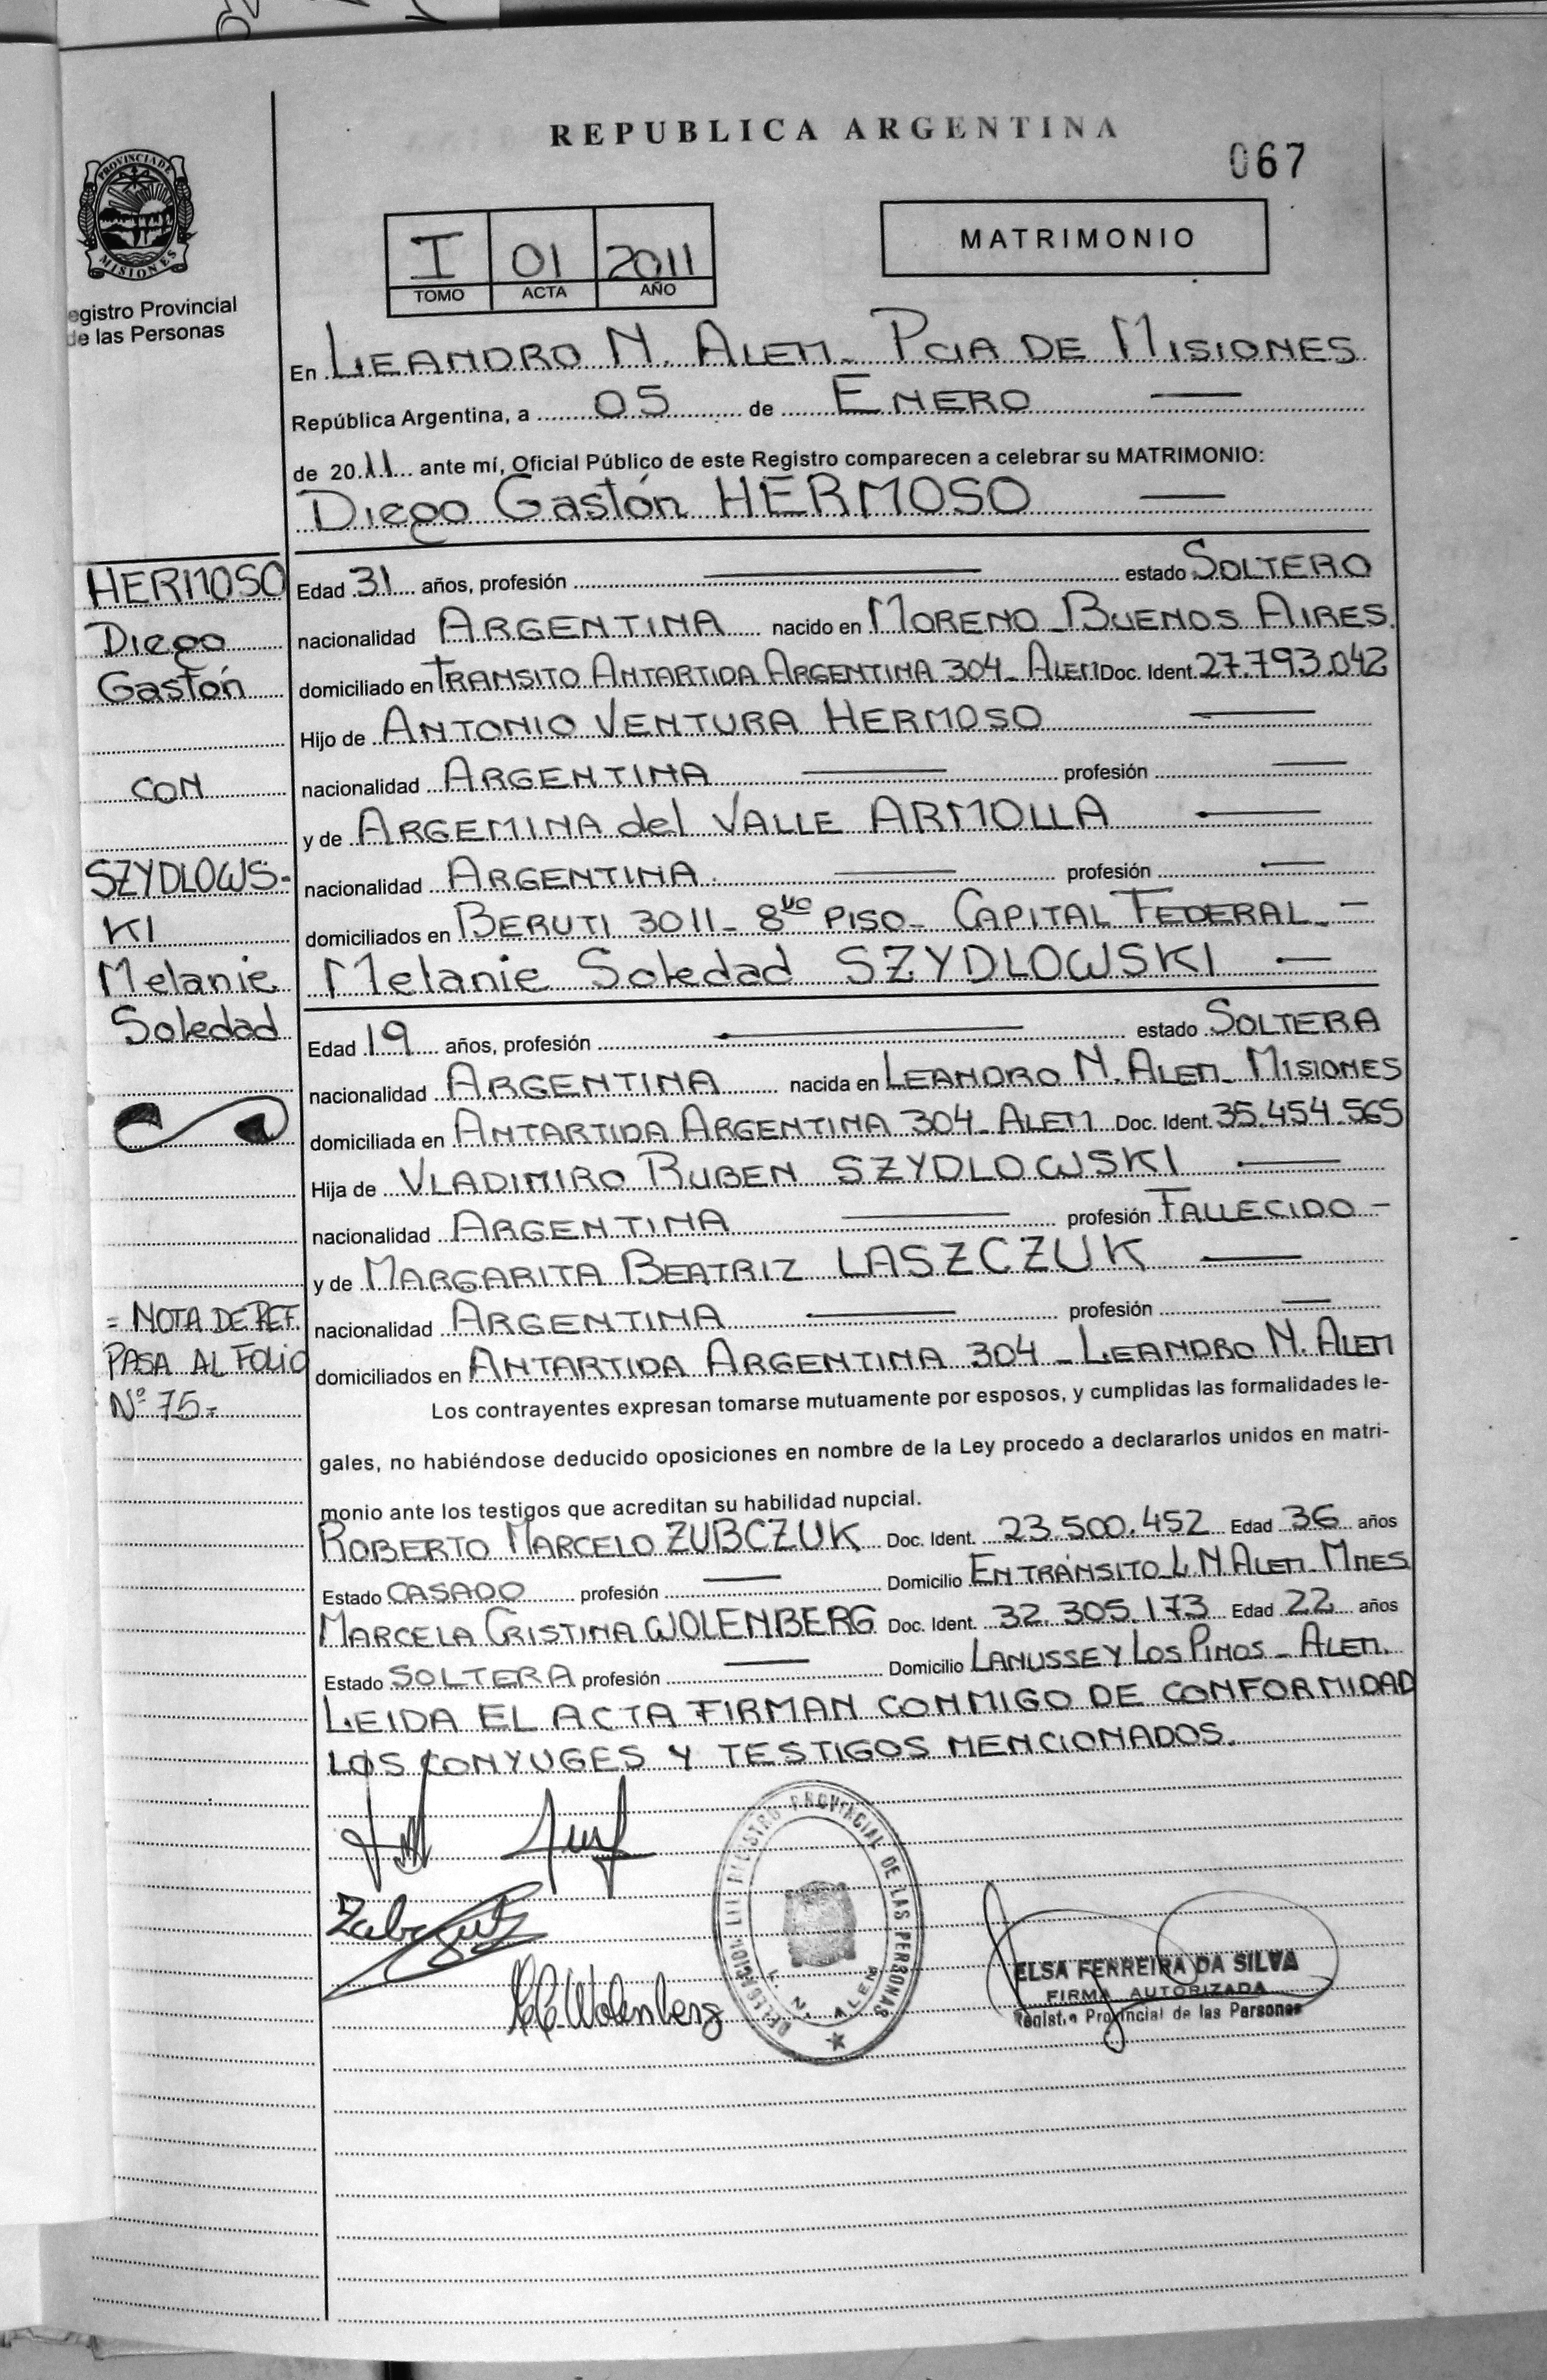 REPUBLICA ARGENTINA
067
PROVINCIA DE MISIONES
egistro Provincial
de las Personas
I 01 2011
TOMO ACTA AÑO
MATRIMONIO
En LEANDRO N. ALEM - PCIA DE MISIONES
República Argentina, a 05 de ENERO
de 2011 ante mí, Oficial Público de este Registro comparecen a celebrar su MATRIMONIO:
Diego Gastón HERMOSO
Edad 31 años, profesión estado SOLTERO
nacionalidad ARGENTINA nacido en MORENO - BUENOS AIRES.
domiciliado en TRANSITO ANTARTIDA ARGENTINA 304 - ALEM Doc. Ident. 27.793.042
Hijo de ANTONIO VENTURA HERMOSO
nacionalidad ARGENTINA profesión
y de ARGEMINA del VALLE ARMOLLA
nacionalidad ARGENTINA. profesión
domiciliados en BERUTI 3011 - 8vo PISO - CAPITAL FEDERAL -
Melanie Soledad SZYDLOWSKI
Edad 19 años, profesión estado SOLTERA
nacionalidad ARGENTINA nacida en LEANDRO N. ALEM - MISIONES
domiciliada en ANTARTIDA ARGENTINA 304 - ALEM Doc. Ident. 35.454.565
Hija de VLADIMIRO RUBEN SZYDLOWSKI
nacionalidad ARGENTINA profesión FALLECIDO -
y de MARGARITA BEATRIZ LASZCZUK
nacionalidad ARGENTINA profesión
domiciliados en ANTARTIDA ARGENTINA 304 - LEANDRO N. ALEM
Los contrayentes expresan tomarse mutuamente por esposos, y cumplidas las formalidades le-
gales, no habiéndose deducido oposiciones en nombre de la Ley procedo a declararlos unidos en matri-
monio ante los testigos que acreditan su habilidad nupcial.
ROBERTO MARCELO ZUBCZUK Doc. Ident. 23.500.452 Edad 36 años
Estado CASADO profesión Domicilio EN TRÁNSITO L.N.ALEM - MNES
MARCELA CRISTINA WOLENBERG Doc. Ident. 32.305.173 Edad 22 años
Estado SOLTERA profesión Domicilio LANUSSE Y LOS PINOS - ALEM.
LEIDA EL ACTA FIRMAN CONMIGO DE CONFORMIDAD
LOS CONYUGES Y TESTIGOS MENCIONADOS.
HERMOSO
Diego
Gastón
CON
SZYDLOWS-
KI
Melanie
Soledad
= NOTA DE REF.
PASA AL FOLIO
Nº 75.-
REGISTRO PROVINCIAL DE LAS PERSONAS
L. N. ALEM
Wolenberg
ELSA FERREIRA DA SILVA
FIRMA AUTORIZADA
Registro Provincial de las Personas